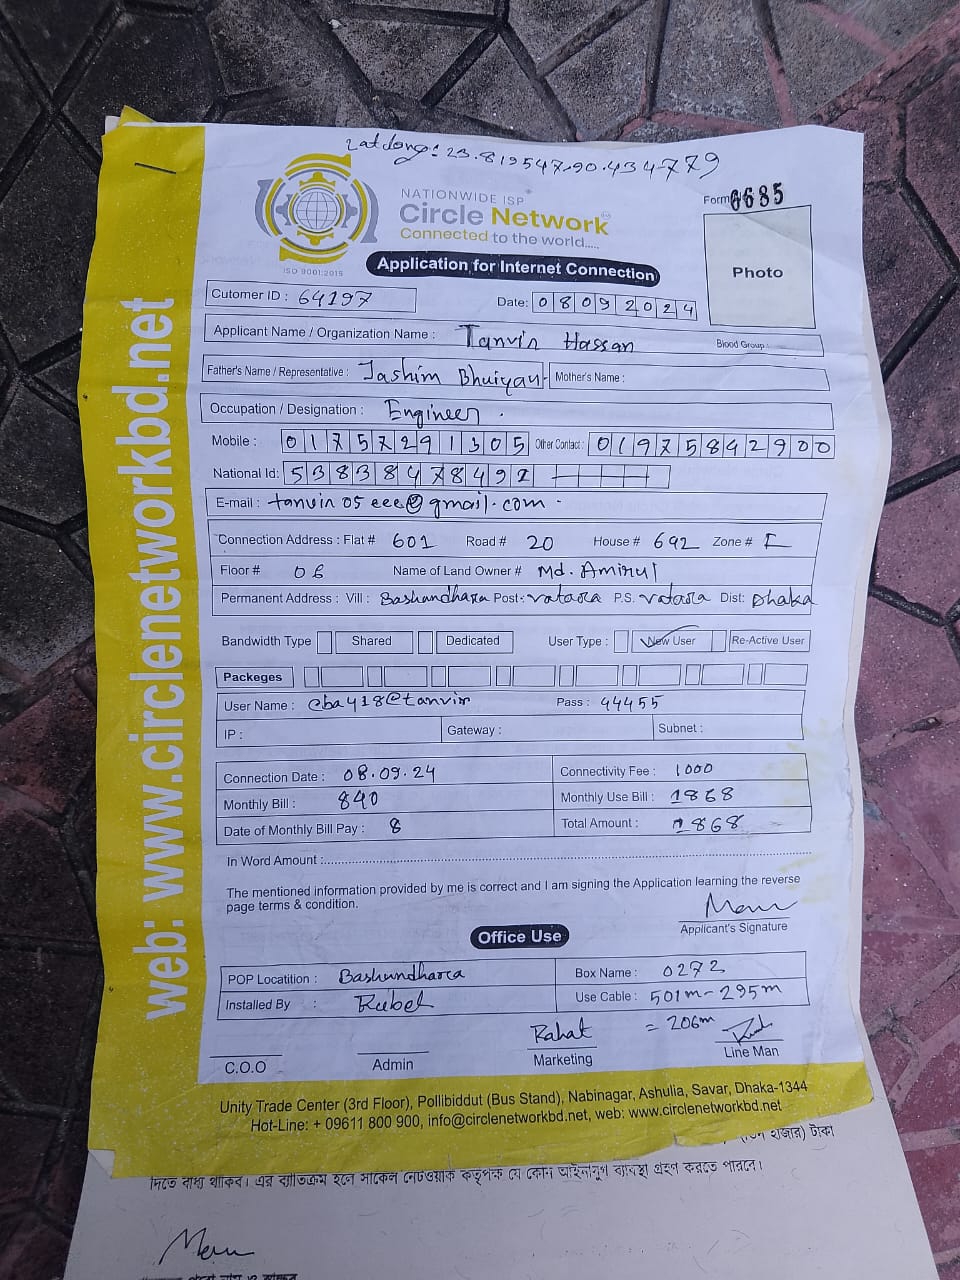 Lat long: 23.819547,90.434779
NATIONWIDE ISP
Circle Network
Connected to the world.....
ISO 9001:2015
Form 6685
Photo
Application for Internet Connection
Cutomer ID : 64197
Date: 08092024
Applicant Name / Organization Name : Tanvin Hassan
Blood Group :
Father's Name / Representative : Jashim Bhuiyan
Mother's Name :
Occupation / Designation : Engineer.
Mobile : 01757291305 Other Contact : 01975842900
National Id: 5383847849
E-mail : tanvin05eee@gmail.com
Connection Address : Flat # 601 Road # 20 House # 692 Zone # I
Floor # 06 Name of Land Owner # Md. Amirul
Permanent Address : Vill : Bashundhara Post: Vatara P.S. Vatara Dist: Dhaka
Bandwidth Type Shared Dedicated User Type : New User Re-Active User
Packeges
User Name : cba418@tanvin Pass : 44455
IP : Gateway : Subnet :
Connection Date : 08.09.24 Connectivity Fee : 1000
Monthly Bill : 840 Monthly Use Bill : 1868
Date of Monthly Bill Pay : 8 Total Amount : 1868
In Word Amount :
The mentioned information provided by me is correct and I am signing the Application learning the reverse
page terms & condition.
Applicant's Signature
Office Use
POP Locatition : Bashundhara Box Name : 0272
Installed By : Rubel Use Cable : 501m-295m
= 206m
Rahat
C.O.O Admin Marketing Line Man
Unity Trade Center (3rd Floor), Pollibiddut (Bus Stand), Nabinagar, Ashulia, Savar, Dhaka-1344
Hot-Line: + 09611 800 900, info@circlenetworkbd.net, web: www.circlenetworkbd.net
web: www.circlenetworkbd.net
হাজার) টাকা
দিতে বাধ্য থাকিব। এর ব্যতিক্রম হলে সার্কেল নেটওয়ার্ক কর্তৃপক্ষ যে কোন আইনানুগ ব্যবস্থা গ্রহণ করতে পারবে।